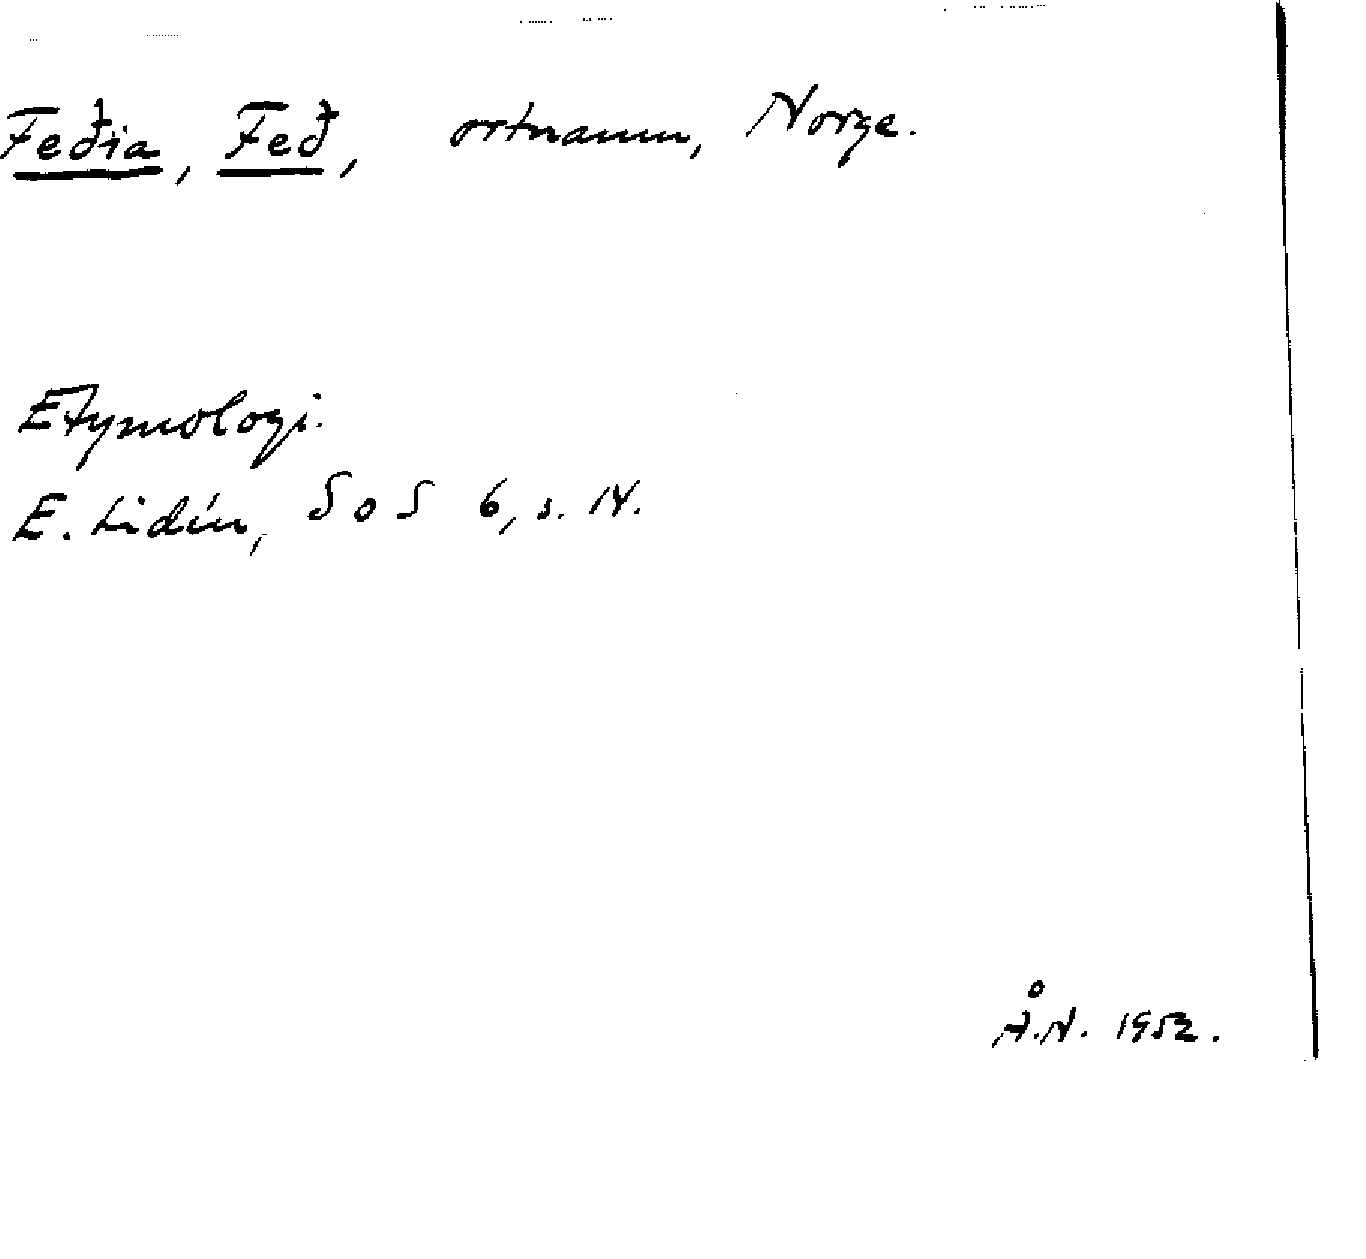 Feðia, Feð, ortnamn, Norge.
Etymologi.
E. Lidén, SoS 6, s. 14.
Å.N. 1952.